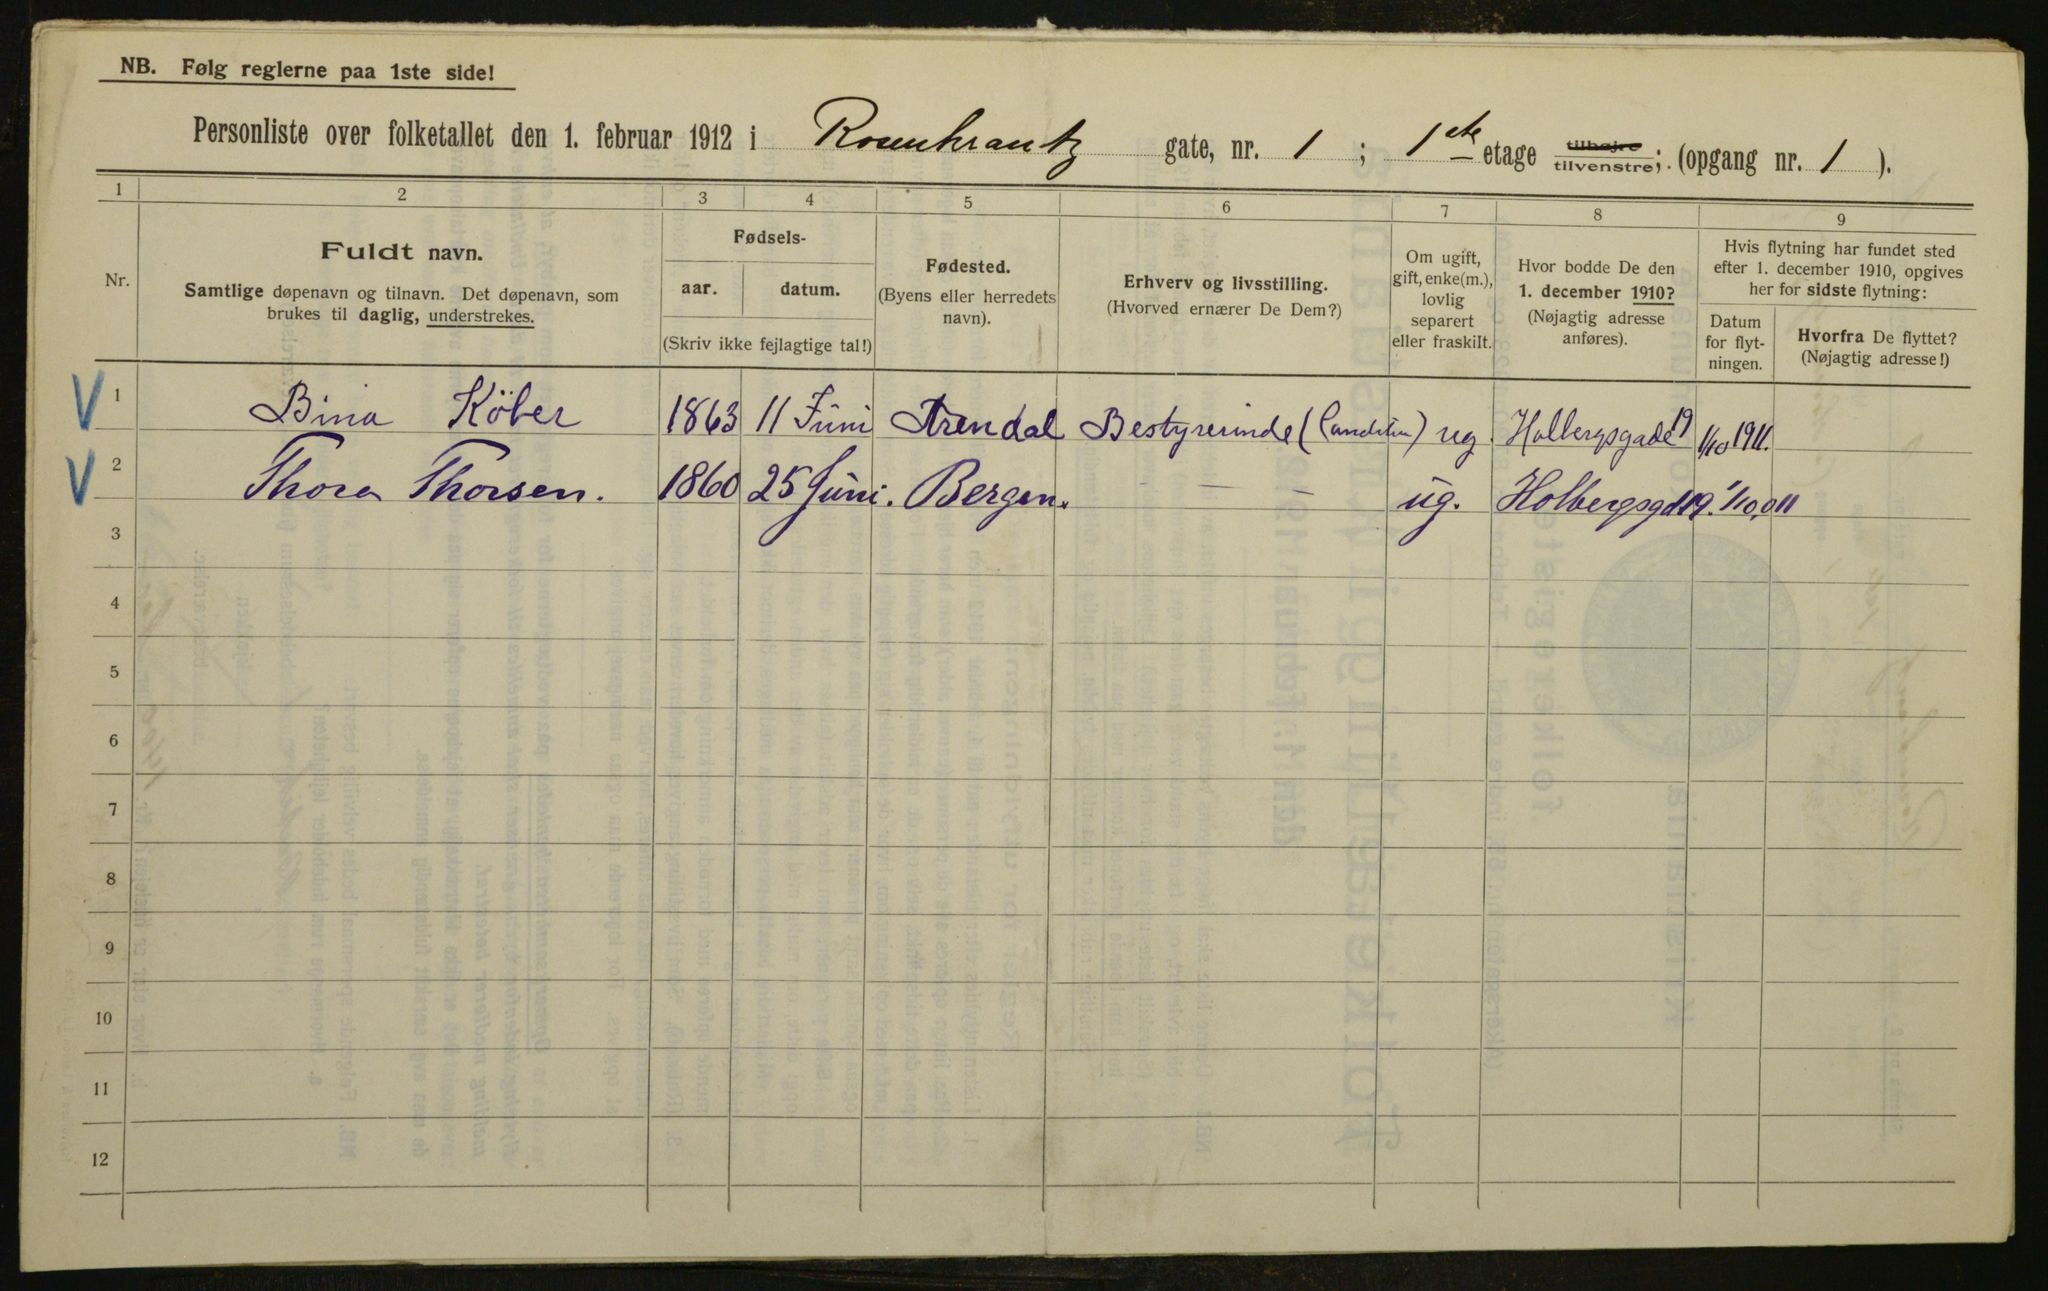 NB. Følg reglerne paa 1ste side!
Personliste over folketallet den 1. februar 1912 i Rosenkrantz gate, nr. 1 ; 1ste etage tilhøjre tilvenstre; (opgang nr. 1 ).
1 2 3 4 5 6 7 8 9
Nr.
Fuldt navn.
Samtlige døpenavn og tilnavn. Det døpenavn, som
brukes til daglig, understrekes.
Fødsels-
aar. datum.
(Skriv ikke fejlagtige tal!)
Fødested.
(Byens eller herredets
navn).
Erhverv og livsstilling.
(Hvorved ernærer De Dem?)
Om ugift,
gift, enke(m.),
lovlig
separert
eller fraskilt.
Hvor bodde De den
1. december 1910?
(Nøjagtig adresse
anføres).
Hvis flytning har fundet sted
efter 1. december 1910, opgives
her for sidste flytning:
Datum
for flyt-
ningen.
Hvorfra De flyttet?
(Nøjagtig adresse!)
V 1 Bina Köber 1863 11 Juni Arendal Bestyrerinde ( ug Holbergsgade 19 1/10 1911.
V 2 Thora Thorsen. 1860 25 Juni. Bergen. – – – ug. Holbergsgd 19. 1/10, 011
3
4
5
6
7
8
9
10
11
12